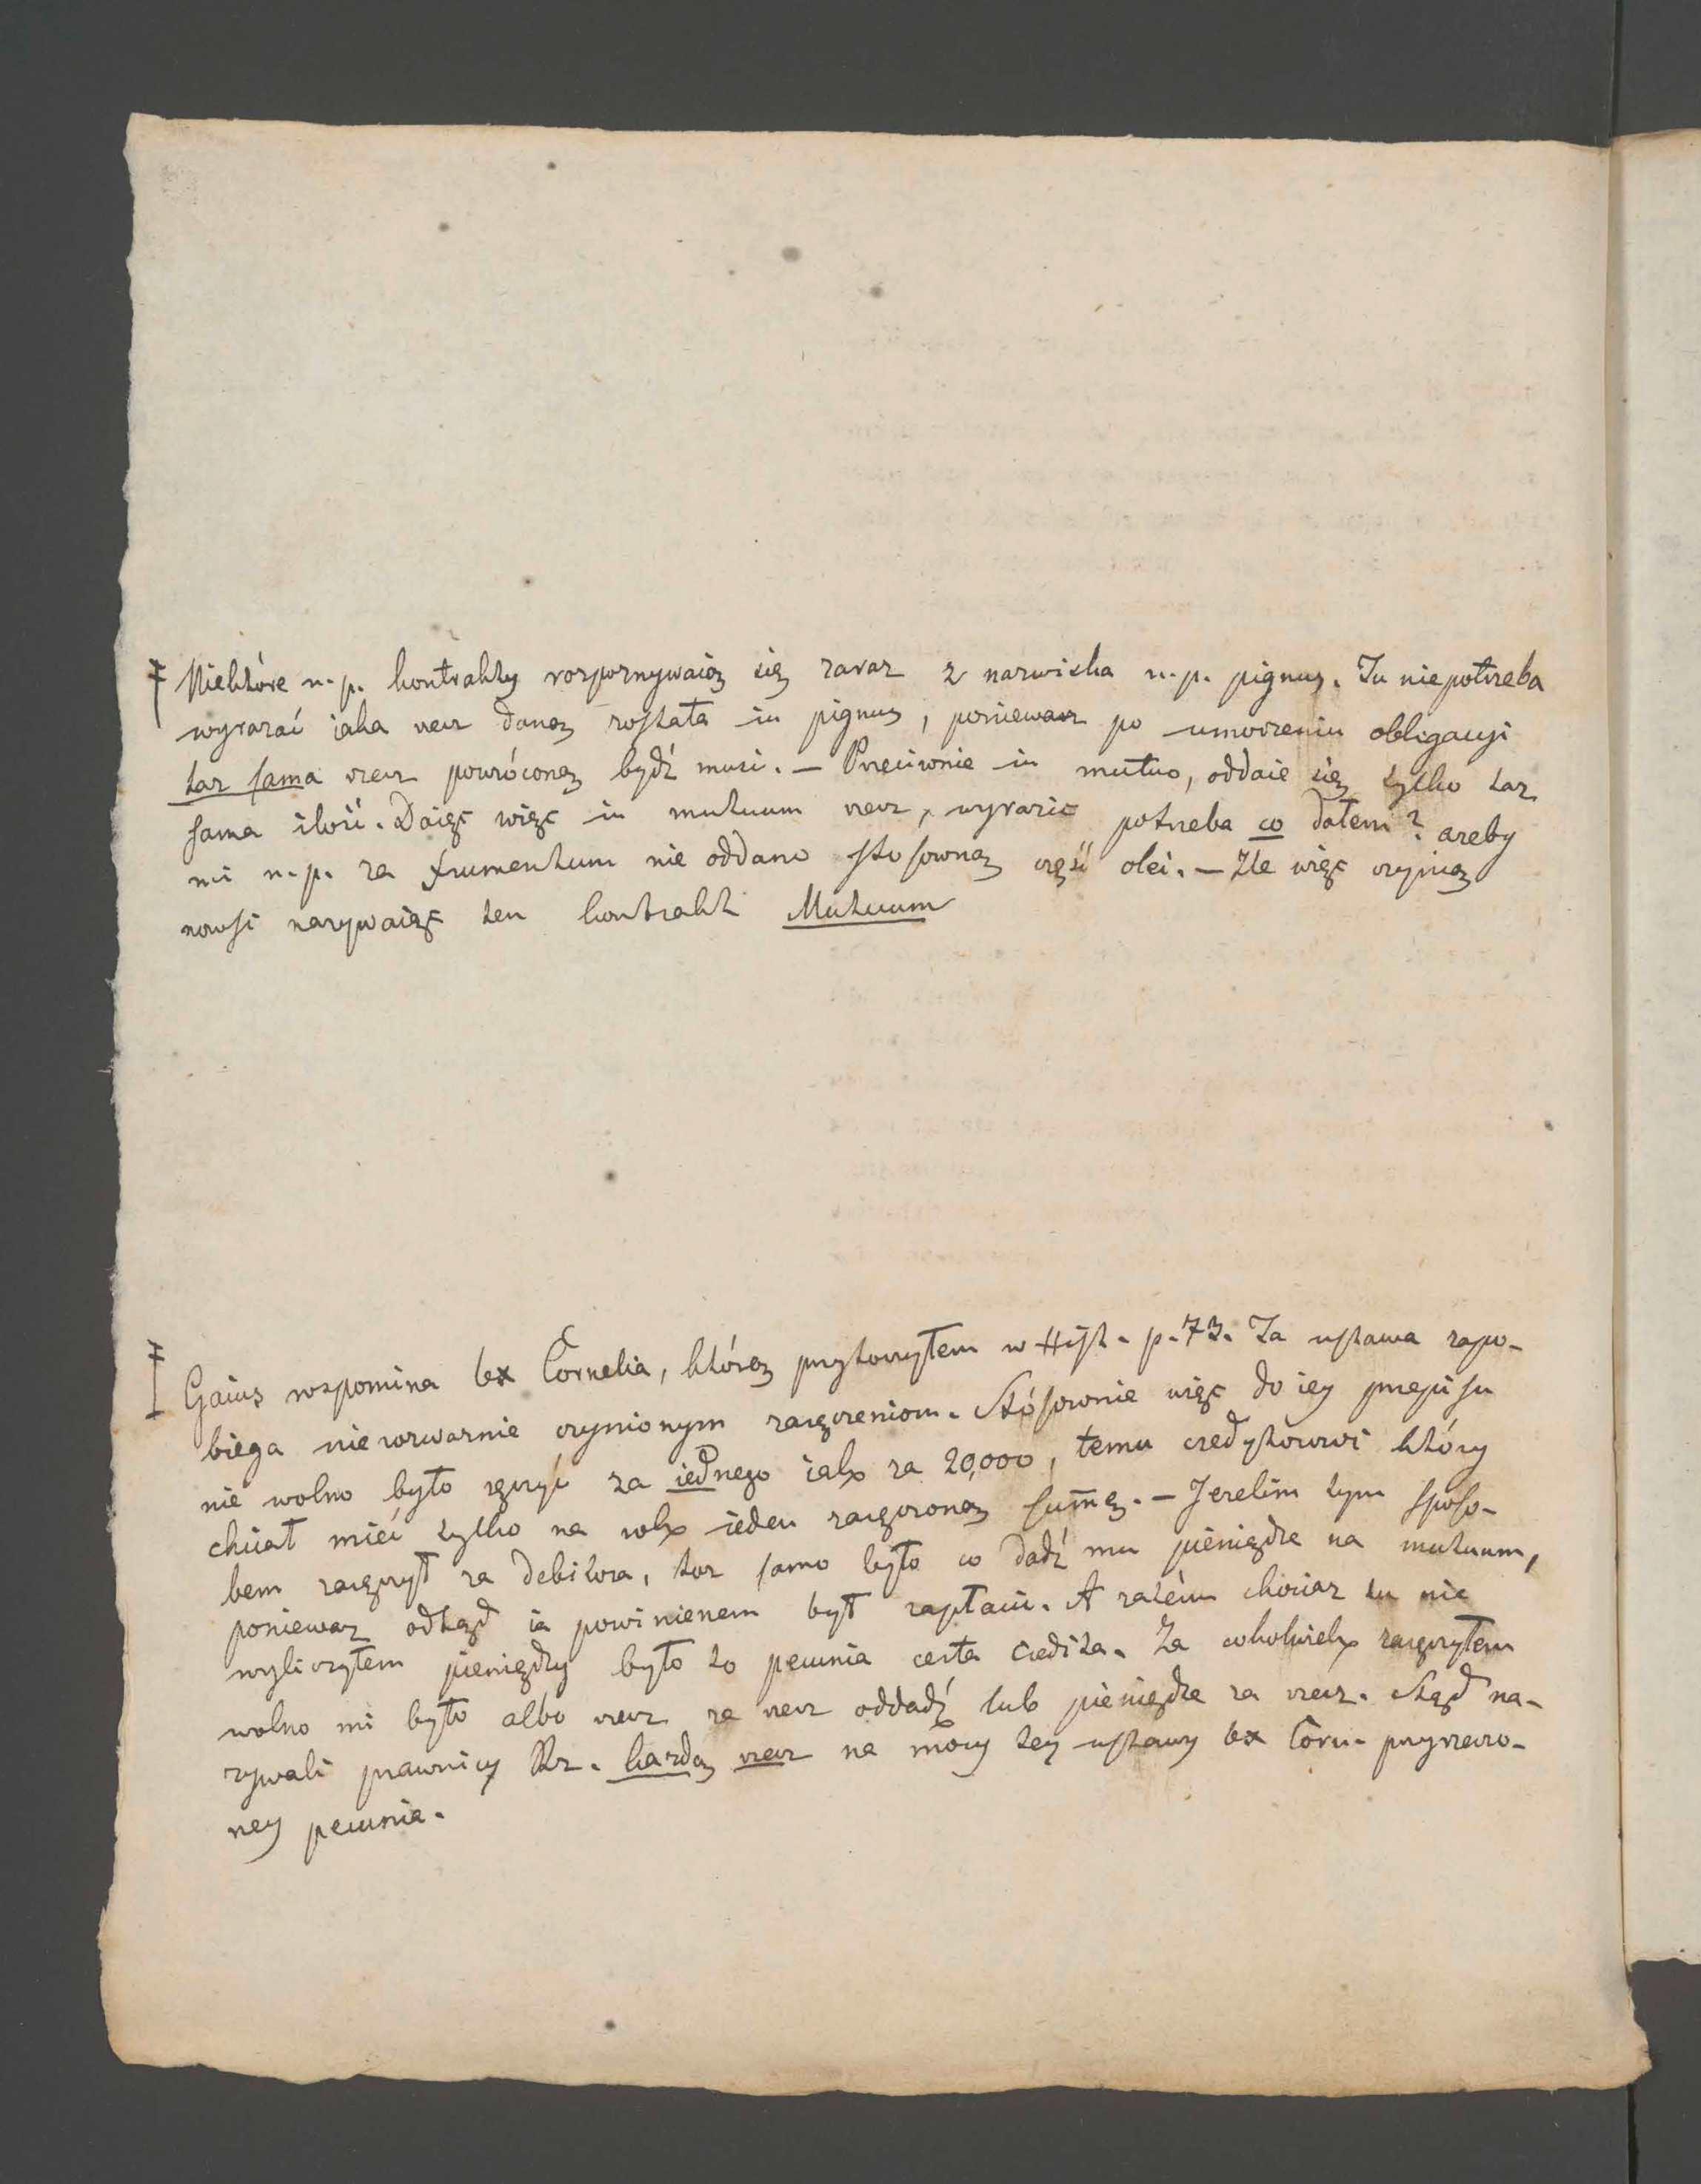 Niektóre n. p. kontrakty rozpoznywaią się zaraz z nazwiska n. p. pignus. Tu niepotrzeba
wyrazać iaka rzecz daną została in pignus, poniewasz po umorzeniu obligacyi
taz sama rzecz powróconą bydź musi. – Przeciwnie in mutuo, oddaie się tylko taz
sama ilość. Daiąc więc in mutuum rzecz, wyrazić potrzeba co dałem? azeby
mi n. p. za frumentum nie oddano stosowną część olei. – Zle więc czynią
nowsi nazywaiąc ten kontrakt Mutuum
Gaius wspomina lex Cornelia, którą przytoczyłem w Hist. p. 73. Ta ustawa zapo-
biega nierozwaznie czynionym zaręczeniom. Stósownie więc do iey przepisu
nie wolno było ręczyć za iednego iak za 20,000, temu credytorowi który
chciał mieć tylko na rok ieden zaręczoną sum̄ę. – Jezelim tym sposo-
bem zaręczył za debitora, toz samo było co dadź mu pieniądze na mutuum,
poniewaz odtąd ia powinienem był zapłacić. A zatém chociaz tu nie
wyliczyłem pieniędzy było to pecunia certa credita. Za cokolwiek zaręczyłem
wolno mi było albo rzecz za rzecz oddadź lub pieniądze za rzecz. Stąd na-
zywali prawnicy Rz. kazdą rzecz na mocy tey ustawy lex Corn. przyrzeczo-
ney pecunia.